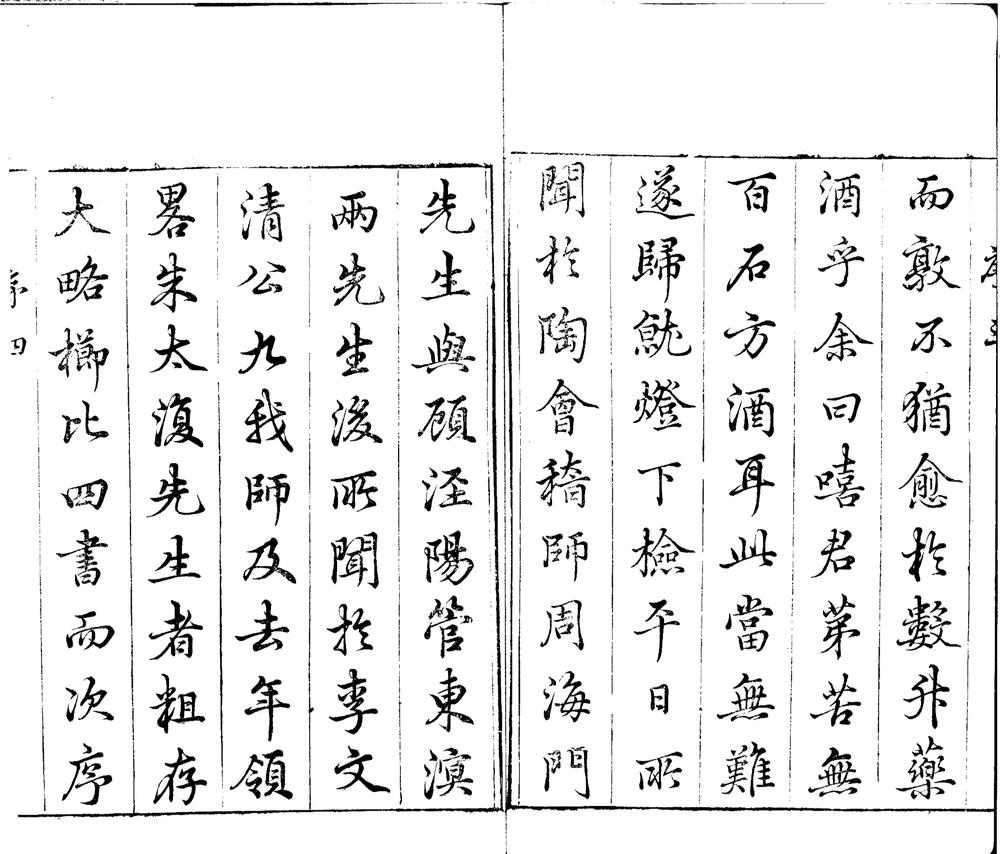 而敦不猶愈於數升藥
酒乎余曰嘻君苐苦無
百石方酒耳此當無難
遂歸就燈下檢平日所
聞於陶會稽師周海門
先生與顧涇陽管東溟
兩先生後所聞於李文
清公九我師及去年領
畧朱太復先生者粗存
大略櫛比四書而次序
序 四